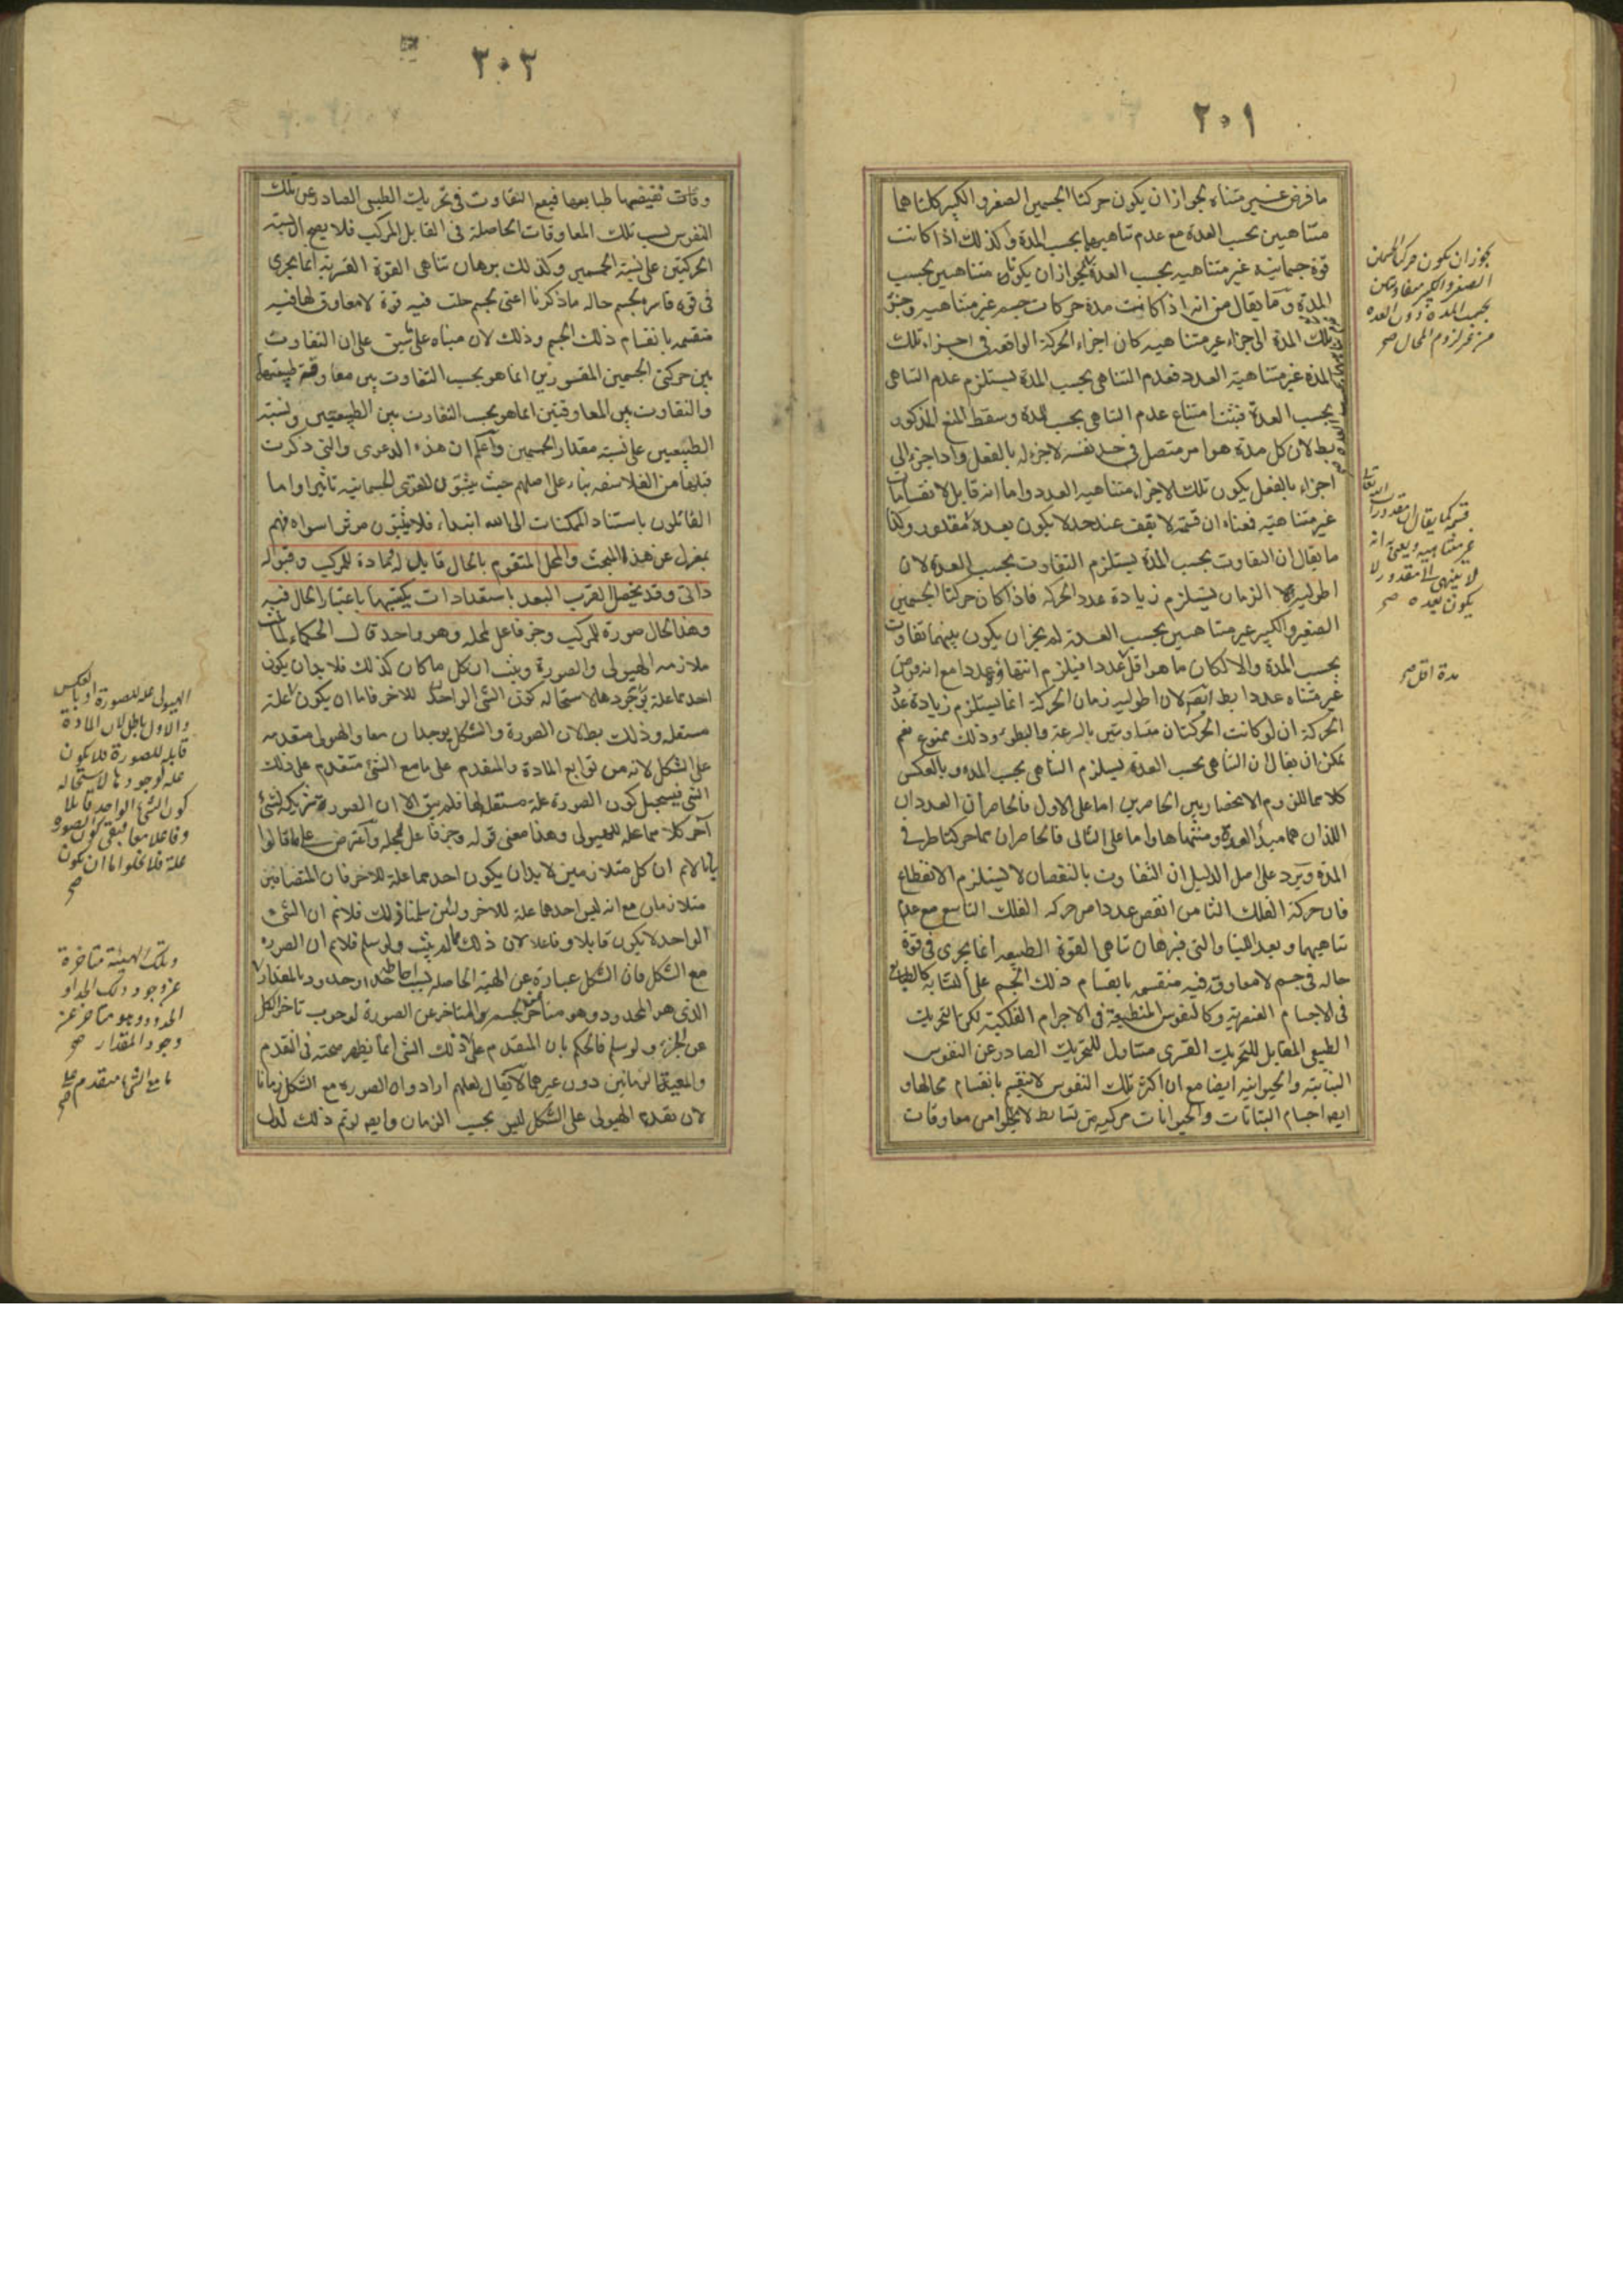 ٢٠١
ما فرض غير متناه لجواز ان يكون حركتا الجسمين الصغير والكبير كلتاهما
متناهيين بحسب العدة مع عدم تناهيهما بحسب المدة وكذلك اذا كانت
قوة جسمانية غير متناهيه بحسب العدة لجواز ان يكونان متناهيين بحسب
المدة وما يقال من انه اذا كانت مدة حركات جسم غير متناهيه
تلك المدة الى اجزاء غير متناهيه كان اجزاء الحركة الواقعه في اجزاء تلك
المدة غير متناهية العدد فعدم التناهى بحسب المدة يستلزم عدم التناهى
بحسب العدة فثبت امتناع عدم التناهى بحسب المدة وسقط المنع المذكور
بط لان كل مدة هو امر متصل في حد نفسه لاجزء له بالفعل واذا جزء الى
اجزاء بالفعل يكون تلك الاجزاء متناهيه العدد واما انه قابل لانقسامات
غير متناهيه فمعناه ان قسمته لا يقف عند حد لا يكون بعده مقدور وكذا
ما يقال ان التفاوت بحسب المدة يستلزم التفاوت بحسب العدة لان
اطولية الزمان يستلزم زيادة عدد الحركه فاذا كان حركتا الجسمين
الصغير والكبير غير متناهيين بحسب العدة لم يجز ان يكون بينهما تفاوت
بحسب المدة والا لكان ما هو اقل عددا فيلزم انتهاؤه عددا مع انه فرض
غير متناه عددا بط ايضا لان اطولية زمان الحركة انما يستلزم زيادة عدد
الحركة ان لو كانت الحركتان متساويتين بالسرعة والبطوء وذلك ممنوع نعم
يمكن ان يقال ان التناهى بحسب العدة يستلزم التناهى بحسب المدة وبالعكس
كلاهما للزوم الانحصار بين الحاصرين اما على الاول فالحاصران العددان
اللذان هما مبدأ العدة ومنتهاها واما على الثانى فالحاصران هما حركتا طرفى
المدة ويرد على اصل الدليل ان التفاوت بالنقصان لا يستلزم الانقطاع
فان حركة الفلك الثامن انقص عددا من حركه الفلك التاسع مع عدم
تناهيهما وبعد اللتيا والتى فبرهان تناهى القوة الطبيعيه انما يجرى فى قوة
حاله فى جسم لا معاوق فيه منقسمه بانقسام ذلك الجسم على التشابه كالطبايع
فى الاجسام العنصرية وكالنفوس المنطبعة فى الاجرام الفلكية لكن التحريك
الطبيعى المقابل للتحريك القسرى متناول للتحريك الصادر عن النفوس
النباتية والحيوانيه ايضا مع ان اكثر تلك النفوس لا ينقسم بانقسام محالها و
ايضا اجسام النباتات والحيوانات مركبة من بسايط لا يخلوا من معاوقات
يجوز ان يكون حركتا الجسمين
الصغير والكبير متفاوتين
بحسب المدة دون العدة
من غير لزوم المحال صح
قسمه كما يقال ان مقدورات الله تعالى
غير متناهيه ويعنى انه
لا ينتهى الى مقدور لا
يكون بعده صح
مدة اقل صح
٢٠٢
وقات تقتضيها طبايعها فيمع التفاوت فى تحريك الطبيعى الصادر عن تلك
النفوس بسبب تلك المعاوقات الحاصلة فى القابل المركب فلا يصح ان نسبة
الحركتين على نسبة الجسمين وكذلك برهان تناهى القوة القسرية انما يجرى
فى قوة قاسر مجسم حاله ما ذكرنا اعنى جسم حلت فيه قوة لا معاوق لها فيه
منقسمه بانقسام ذلك الجسم وذلك لان مبناه على ما سبق على ان التفاوت
بين حركتى الجسمين المقسورين انما هو بحسب التفاوت بين معاوقة طبيعتيهما
والتفاوت بين المعاوقتين انما هو بحسب التفاوت بين الطبيعتين ونسبة
الطبيعتين على نسبة مقدار الجسمين واعلم ان هذه الدعوى والتى ذكرت
قبلها من الفلاسفه بناء على اصلهم حيث يثبتون للقوى الجسمانيه تاثيرا واما
القائلون باستناد الممكنات الى الله ابتداء فلا يثبتون مؤثرا سواه فهم
بمعزل عن هذا المبحث والمحل المتقوم بالحال قابل له مادة للمركب وقبوله
ذاتى وقد يحصل القرب البعد باستعدادات يكتسبها باعتبار الحال فيه
وهذا الحال صورة للمركب وجزء فاعل لمحله وهو واحد قال الحكماء لما ثبت
ملازمه الهيولى والصورة وثبت ان كل ما كان كذلك فلا بد ان يكون
احدهما علة لوجود الاخر لاستحاله كون الشئ الواحد للاخر فاما ان يكون علة
مستقله وذلك بط لان الصورة والشكل يوجدان معا والهيولى متقدمه
على الشكل لانه من توابع المادة والمتقدم على ما مع الشئ متقدم على ذلك
الشئ فيستحيل كون الصورة علة مستقلة لها فلم يبق الا ان الصورة شريكه لشئ
آخر كلاهما علة للهيولى وهذا معنى قوله وجزء فاعل لمحله واعترض على ما قالوا
بانا لانم ان كل متلازمين لا بد ان يكون احدهما علة للاخر فان المتضايفين
متلازمان مع انه ليس احدهما علة للاخر ولئن سلمنا ذلك فلانم ان الشئ
الواحد لا يكون قابلا وفاعلا لان ذلك مما لم يثبت ولو سلم فلانم ان الصورة
مع الشكل فان الشكل عبارة عن الهيئة الحاصله بسبب احاطة حد او حدود بالمقدار
الذى هو المحدود وهو متأخر عن الجسم المتاخر عن الصورة لوجوب تاخر الكل
عن الجزء ولو سلم فالحكم بان المتقدم على ما مع الشئ متقدم على ذلك الشئ انما يظهر صحته فى التقدم
والمعية الزمانيين دون غيرهما لا يقال لعلهم ارادوا ان الصورة مع الشكل زمانا
لان تقدم الهيولى على الشكل ليس بحسب الزمان وايضا لو تم ذلك لدل
الهيولى علة للصورة او بالعكس
والاول باطل لان المادة
قابلة للصورة فلا يكون
علة لوجودها لاستحاله
كون الشئ الواحد قابلا
وفاعلا معا فبقى كون الصورة
علة فلا يخلو اما ان يكون
صح
وتلك الهيئة متاخرة
عن وجود ذلك الحد او
الحدود وهو متاخر عن
وجود المقدار صح
ما مع الشئ متقدم على
صح